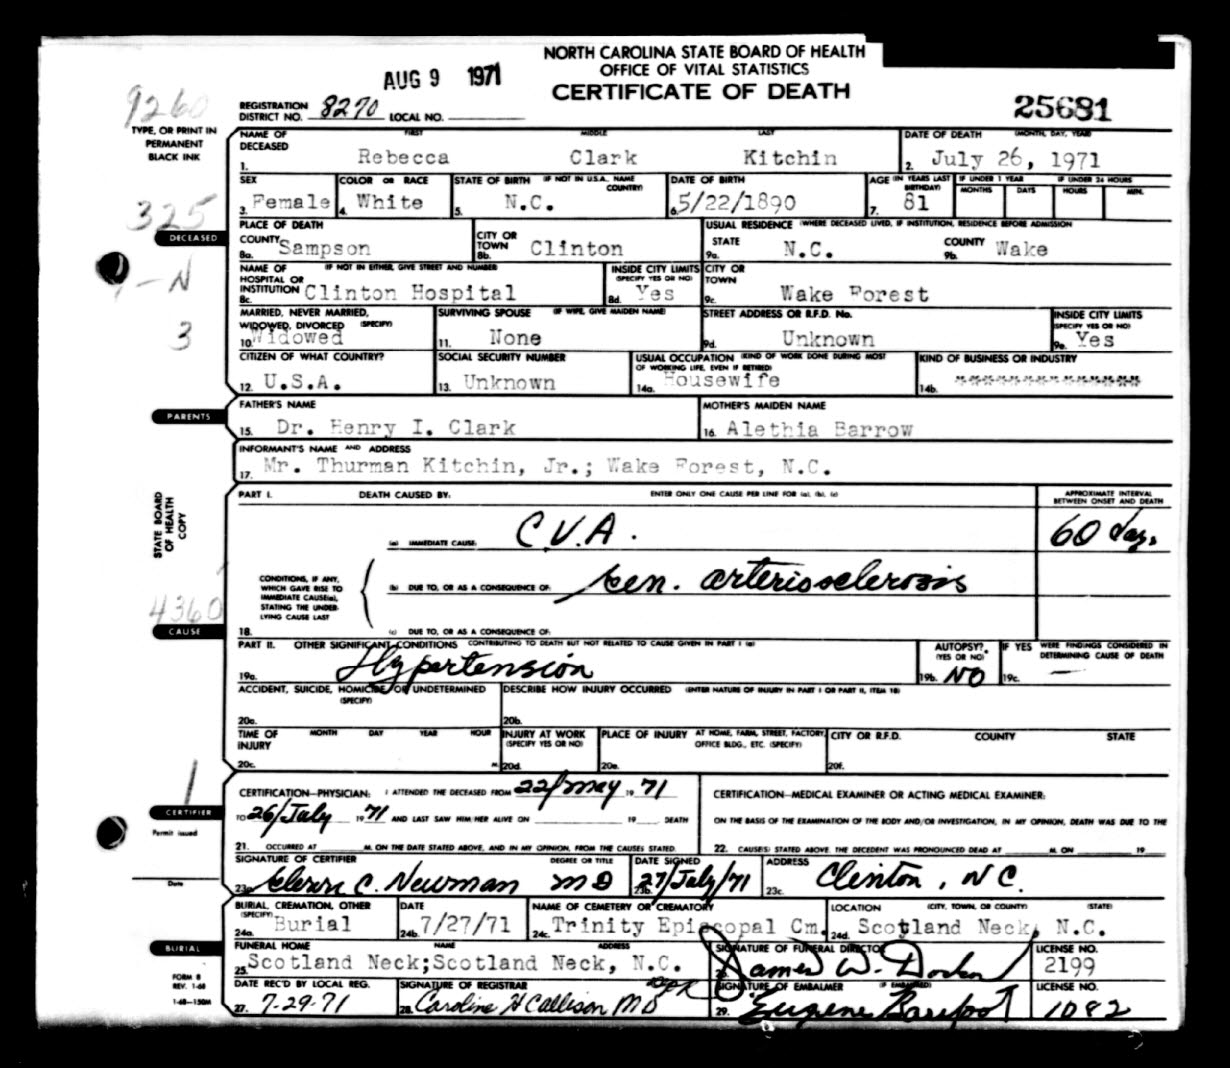 NORTH CAROLINA STATE BOARD OF HEALTH
OFFICE OF VITAL STATISTICS
CERTIFICATE OF DEATH
AUG 9 1971
25681
9260
REGISTRATION DISTRICT NO. 8270 LOCAL NO.
TYPE, OR PRINT IN PERMANENT BLACK INK
NAME OF DECEASED FIRST MIDDLE LAST DATE OF DEATH (MONTH, DAY, YEAR)
1. Rebecca Clark Kitchin 2. July 26, 1971
SEX COLOR OR RACE STATE OF BIRTH (IF NOT IN U.S.A. NAME COUNTRY) DATE OF BIRTH AGE (IN YEARS LAST BIRTHDAY) IF UNDER 1 YEAR MONTHS DAYS IF UNDER 24 HOURS HOURS MIN.
3. Female 4. White 5. N.C. 6. 5/22/1890 7. 81
325
DECEASED
PLACE OF DEATH USUAL RESIDENCE (WHERE DECEASED LIVED, IF INSTITUTION, RESIDENCE BEFORE ADMISSION
COUNTY 8a. Sampson CITY OR TOWN 8b. Clinton STATE 9a. N.C. COUNTY 9b. Wake
N
NAME OF HOSPITAL OR INSTITUTION IF NOT IN EITHER, GIVE STREET AND NUMBER INSIDE CITY LIMITS (SPECIFY YES OR NO) CITY OR TOWN
8c. Clinton Hospital 8d. Yes 9c. Wake Forest
3
MARRIED, NEVER MARRIED, WIDOWED, DIVORCED (SPECIFY) SURVIVING SPOUSE (IF WIFE, GIVE MAIDEN NAME) STREET ADDRESS OR R.F.D. No. INSIDE CITY LIMITS (SPECIFY YES OR NO)
10. Widowed 11. None 9d. Unknown 9e. Yes
CITIZEN OF WHAT COUNTRY? SOCIAL SECURITY NUMBER USUAL OCCUPATION (KIND OF WORK DONE DURING MOST OF WORKING LIFE, EVEN IF RETIRED) KIND OF BUSINESS OR INDUSTRY
12. U.S.A. 13. Unknown 14a. Housewife 14b.
PARENTS
FATHER'S NAME MOTHER'S MAIDEN NAME
15. Dr. Henry I. Clark 16. Alethia Barrow
INFORMANT'S NAME AND ADDRESS
17. Mr. Thurman Kitchin, Jr.; Wake Forest, N.C.
STATE BOARD OF HEALTH COPY
PART I. DEATH CAUSED BY: ENTER ONLY ONE CAUSE PER LINE FOR (a), (b), (c) APPROXIMATE INTERVAL BETWEEN ONSET AND DEATH
(a) IMMEDIATE CAUSE: C.V.A. 60 days.
CONDITIONS, IF ANY, WHICH GAVE RISE TO IMMEDIATE CAUSE(a), STATING THE UNDERLYING CAUSE LAST
(b) DUE TO, OR AS A CONSEQUENCE OF: Gen. arteriosclerosis
4360
CAUSE
18. (c) DUE TO, OR AS A CONSEQUENCE OF:
PART II. OTHER SIGNIFICANT CONDITIONS CONTRIBUTING TO DEATH BUT NOT RELATED TO CAUSE GIVEN IN PART I (a) AUTOPSY? (YES OR NO) IF YES WERE FINDINGS CONSIDERED IN DETERMINING CAUSE OF DEATH
19a. Hypertension 19b. NO 19c. —
ACCIDENT, SUICIDE, HOMICIDE, OR UNDETERMINED (SPECIFY) DESCRIBE HOW INJURY OCCURRED (ENTER NATURE OF INJURY IN PART I OR PART II, ITEM 18)
20a. 20b.
TIME OF INJURY MONTH DAY YEAR HOUR INJURY AT WORK (SPECIFY YES OR NO) PLACE OF INJURY AT HOME, FARM, STREET, FACTORY, OFFICE BLDG., ETC. (SPECIFY) CITY OR R.F.D. COUNTY STATE
20c. M. 20d. 20e. 20f.
1
CERTIFIER
Permit issued
Date
CERTIFICATION—PHYSICIAN: I ATTENDED THE DECEASED FROM 22/May 19 71
TO 26/July 19 71 AND LAST SAW HIM/HER ALIVE ON 19 DEATH
21. OCCURRED AT M. ON THE DATE STATED ABOVE, AND IN MY OPINION, FROM THE CAUSES STATED.
CERTIFICATION—MEDICAL EXAMINER OR ACTING MEDICAL EXAMINER:
ON THE BASIS OF THE EXAMINATION OF THE BODY AND/OR INVESTIGATION, IN MY OPINION, DEATH WAS DUE TO THE
22. CAUSE(S) STATED ABOVE. THE DECEDENT WAS PRONOUNCED DEAD AT M. ON 19
SIGNATURE OF CERTIFIER DEGREE OR TITLE DATE SIGNED ADDRESS
23a. Glenn C. Newman MD 23b. 27/July/71 23c. Clinton, NC.
BURIAL, CREMATION, OTHER (SPECIFY) DATE NAME OF CEMETERY OR CREMATORY LOCATION (CITY, TOWN, OR COUNTY) (STATE)
24a. Burial 24b. 7/27/71 24c. Trinity Episcopal Cm. 24d. Scotland Neck, N.C.
BURIAL
FUNERAL HOME NAME ADDRESS SIGNATURE OF FUNERAL DIRECTOR LICENSE NO.
25. Scotland Neck;Scotland Neck, N.C. James W. 2199
FORM 8 REV. 1-68
1-68—150M
DATE REC'D BY LOCAL REG. SIGNATURE OF REGISTRAR SIGNATURE OF EMBALMER (IF EMBALMED) LICENSE NO.
27. 7-29-71 28. Caroline H Callison MD 29. Eugene Barefoot 1082